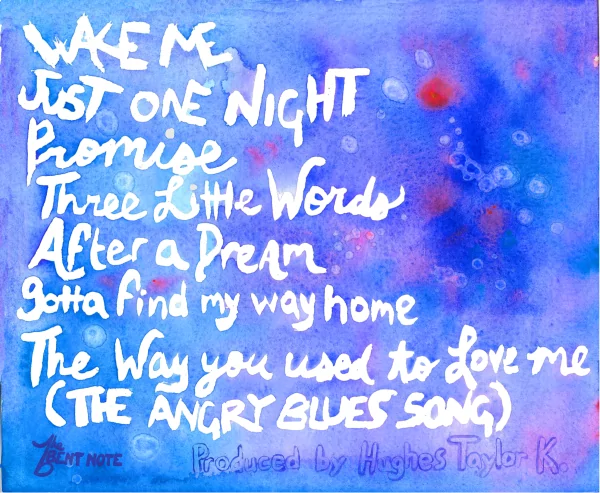 WAKE ME
JUST ONE NIGHT
Promise
Three Little Words
After a Dream
gotta find my way home
The Way you used to Love me
(THE ANGRY BLUES SONG)
The
BENT NOTE
Produced by Hughes Taylor K.